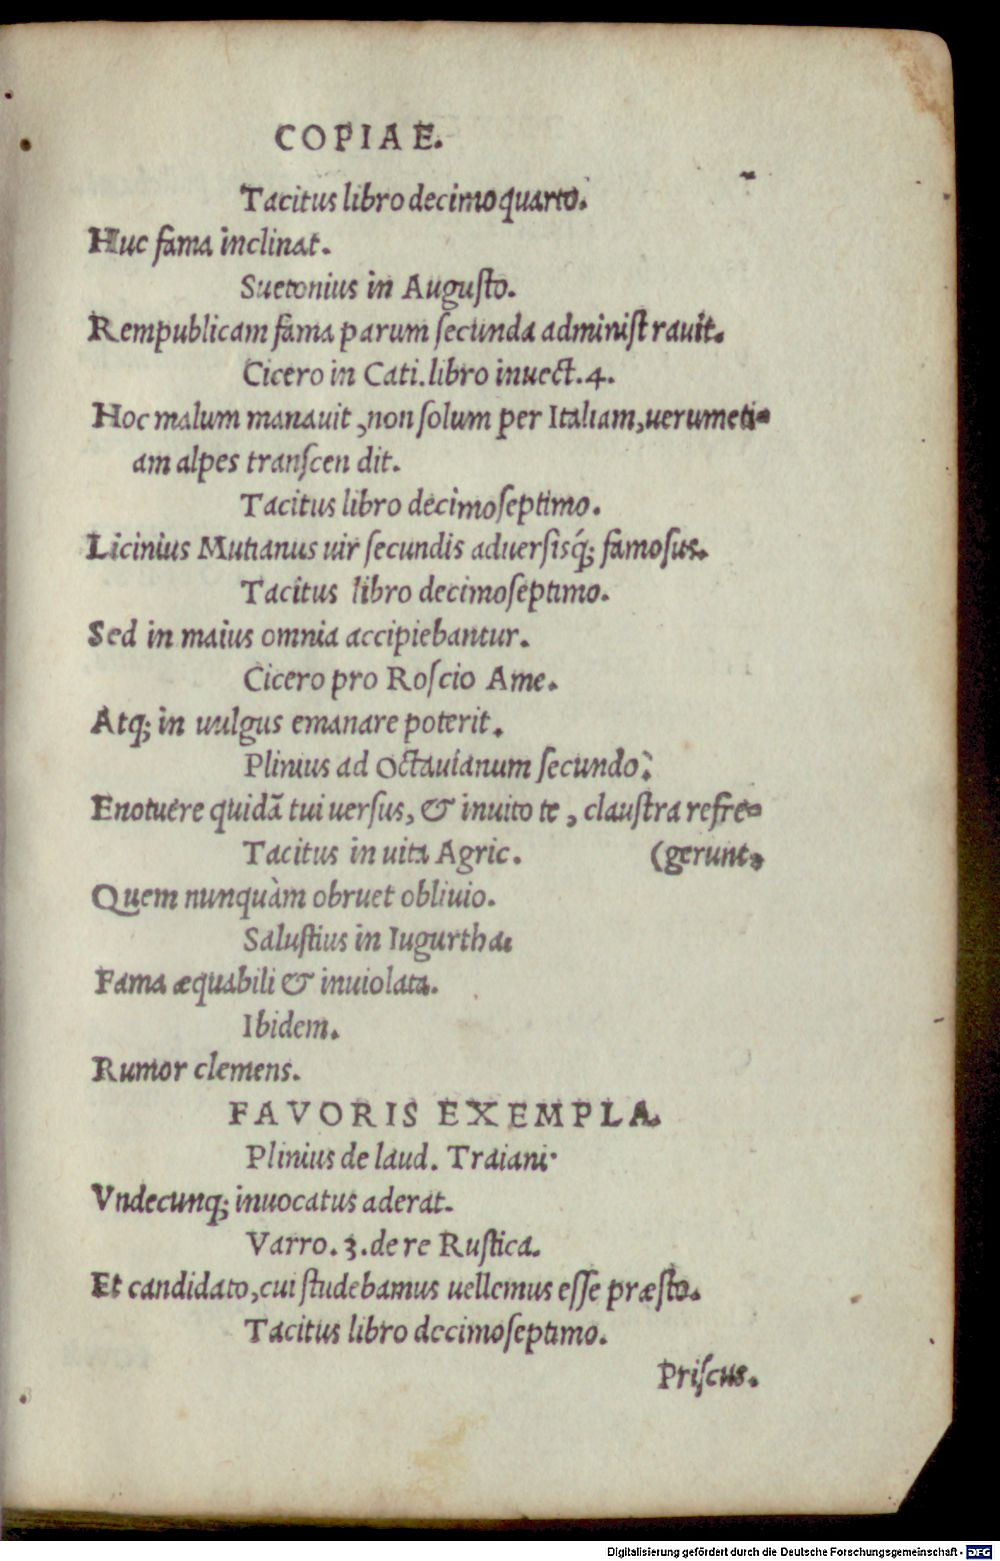 COPIAE.
Tacitus libro decimoquarto.
Huc fama inclinat.
Suetonius in Augusto.
Rempublicam fama parum secunda administrauit.
Cicero in Cati. libro inuect. 4.
Hoc malum manauit, non solum per Italiam, uerumeti-
am alpes transcendit.
Tacitus libro decimoseptimo.
Licinius Mutianus uir secundis aduersisq́; famosus.
Tacitus libro decimoseptimo.
Sed in maius omnia accipiebantur.
Cicero pro Roscio Ame.
Atq; in uulgus emanare poterit.
Plinius ad Octauianum secundo.
Enotuere quidã tui uersus, & inuito te, claustra refre-
Tacitus in uita Agric. (gerunt.
Quem nunquàm obruet obliuio.
Salustius in Iugurtha.
Fama æquabili & inuiolata.
Ibidem.
Rumor clemens.
FAVORIS EXEMPLA.
Plinius de laud. Traiani.
Vndecunq; inuocatus aderat.
Varro. 3. de re Rustica.
Et candidato, cui studebamus uellemus esse præsto.
Tacitus libro decimoseptimo.
Priscus.
Digitalisierung gefördert durch die Deutsche Forschungsgemeinschaft - DFG